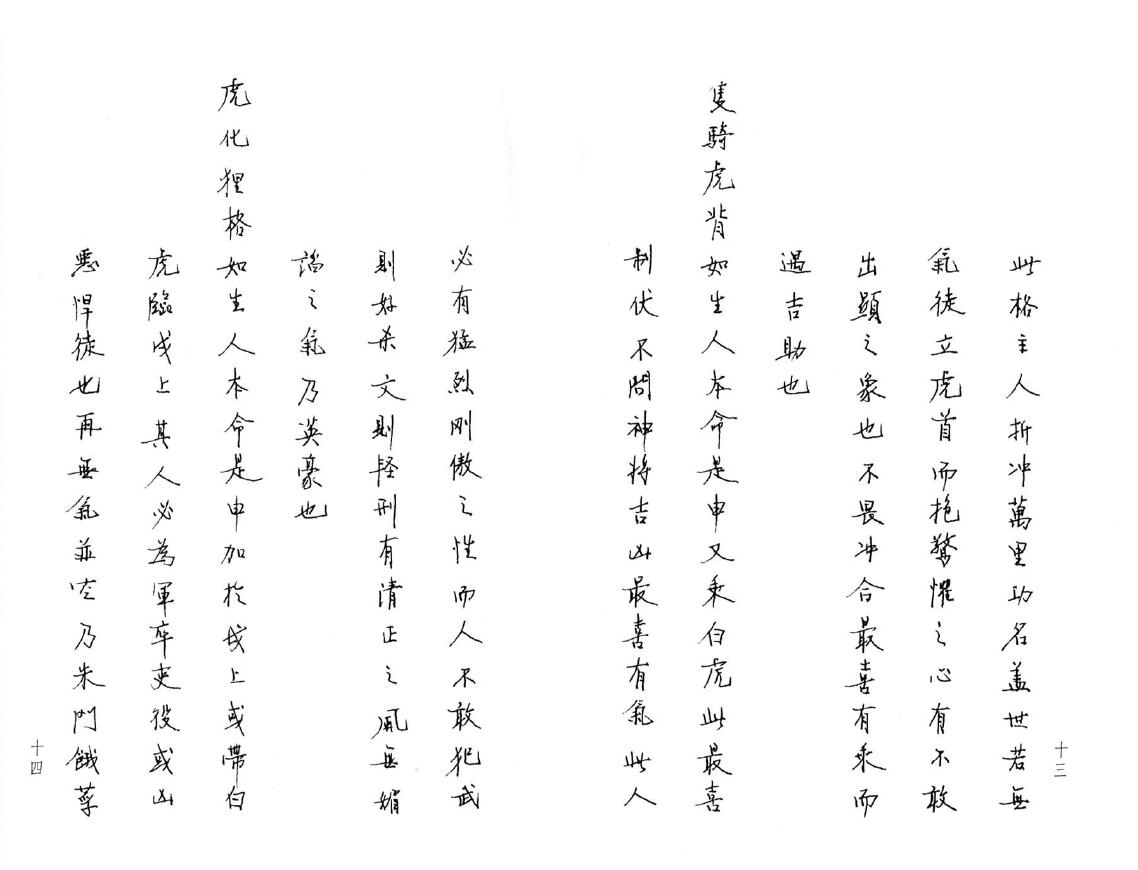 此格主人折冲萬里功名盖世若無
氣徒立虎首而抱驚懼之心有不敢
出顯之象也不畏冲合最喜有乘而
遇吉助也
隻騎虎背如生人本命是申又乘白虎此最喜
制伏不問神将吉凶最喜有氣此人
十三
必有猛烈刚傲之性而人不敢犯武
則好杀文則怪刑有清正之風無媚
諂之氣乃英豪也
虎化狸格如生人本命是申加於戌上或帶白
虎臨戌上其人必為軍卒吏役或凶
悪悍徒也再無氣並空乃朱門餓莩
十四